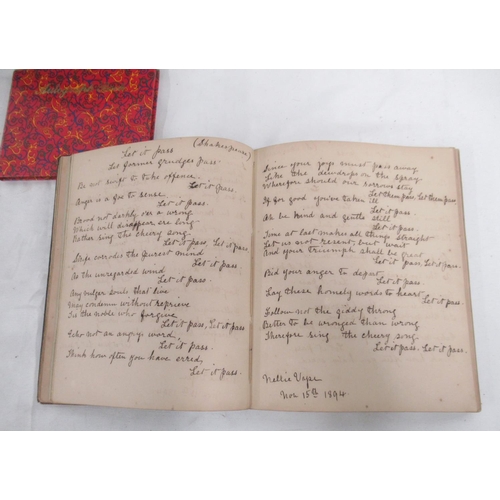 Autograph Album
Let it pass
(Shakespeare)
Let former grudges pass
Be not swift to take offence
Let it pass.
Anger is a foe to sense
Let it pass.
Brood not darkly o'er a wrong
Which will disappear ere long
Rather sing the cheery song
Let it pass, Let it pass
corrodes the purest mind
Let it pass.
As the unregarded wind
Let it pass.
Any vulgar souls that live
May condemn without reprieve
Tis the noble who forgive
Let it pass, Let it pass
Echo not an angry word,
Let it pass.
Think how often you have erred,
Let it pass.
Since your joys must pass away
Like the dewdrops on the spray
Wherefore should our sorrows stay
Let them pass, Let them pass
If for good you've taken ill
Let it pass.
Oh be kind and gentle still
Let it pass.
Time at last makes all things straight
Let us not resent, but wait
And your triumph shall be great
Let it pass, Let it pass.
Bid your anger to depart
Let it pass
Lay these homely words to heart
Let it pass.
Follow not the giddy throng
Better to be wronged than wrong
Therefore sing the cheery song
Let it pass. Let it pass.
Nellie
Nov 15th 1894